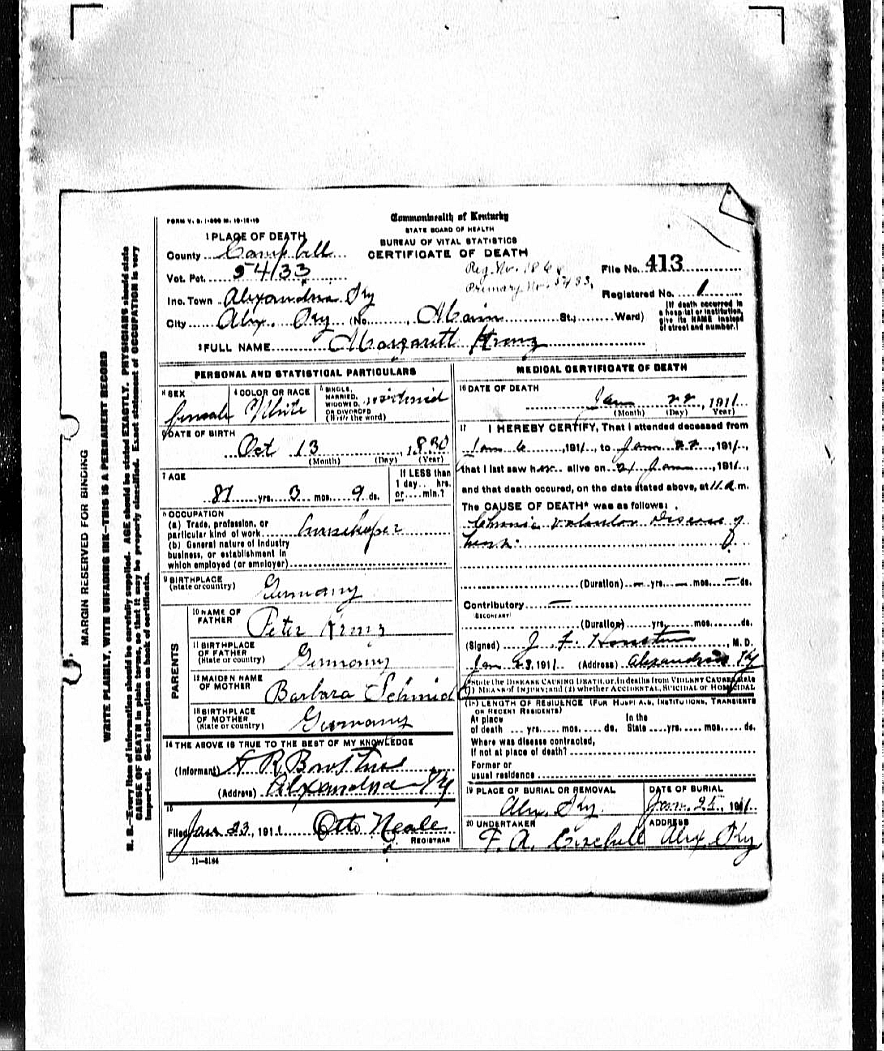 FORM V. S. 1-
Commonwealth of Kentucky
STATE BOARD OF HEALTH
BUREAU OF VITAL STATISTICS
CERTIFICATE OF DEATH
1 PLACE OF DEATH
County Campbell
Vot. Pct. 54133
Inc. Town Alexandria Ky
City Alex. Ky (No. Main St.; Ward)
Reg. No.
Primary No.
File No. 413
Registered No. 1
[If death occurred in a hospital or institution, give its NAME instead of street and number.]
2 FULL NAME Margarett
PERSONAL AND STATISTICAL PARTICULARS
3 SEX Female
4 COLOR OR RACE White
5 SINGLE, MARRIED, WIDOWED, OR DIVORCED (Write the word)
6 DATE OF BIRTH Oct 13
(Month) (Day) (Year)
7 AGE
yrs. 3 mos. 9 ds.
If LESS than 1 day.. hrs. or.... min.?
8 OCCUPATION
(a) Trade, profession, or particular kind of work
(b) General nature of industry business, or establishment in which employed (or employer)
9 BIRTHPLACE
(State or country) Germany
PARENTS
10 NAME OF FATHER Peter
11 BIRTHPLACE OF FATHER (State or country) Germany
12 MAIDEN NAME OF MOTHER Barbara Schmid
13 BIRTHPLACE OF MOTHER (State or country) Germany
14 THE ABOVE IS TRUE TO THE BEST OF MY KNOWLEDGE
(Informant) A R
(Address) Alexandria Ky
15
Filed Jan 23, 1911 Otto Neale
REGISTRAR
11-3184
MEDICAL CERTIFICATE OF DEATH
16 DATE OF DEATH
Jan 22, 1911
(Month) (Day) (Year)
17 I HEREBY CERTIFY, That I attended deceased from
Jan 6, 191 , to Jan 22, 191 ,
that I last saw her alive on 21 Jan, 191 ,
and that death occured, on the date stated above, at 11 a.m.
The CAUSE OF DEATH* was as follows:
Chronic Valvular Disease of
heart
(Duration) yrs. mos. ds.
Contributory
(SECONDARY)
(Duration) yrs. mos. ds.
(Signed) J. F. M.D.
Jan 23, 191 . (Address) Alexandria Ky
*State the DISEASE CAUSING DEATH, or, in deaths from VIOLENT CAUSES, state (1) MEANS of INJURY; and (2) whether ACCIDENTAL, SUICIDAL or HOMICIDAL
18 LENGTH OF RESIDENCE (FOR HOSPITALS, INSTITUTIONS, TRANSIENTS OR RECENT RESIDENTS)
At place of death yrs. mos. ds. In the State yrs. mos. ds.
Where was disease contracted,
if not at place of death?
Former or
usual residence
19 PLACE OF BURIAL OR REMOVAL Alex. Ky.
DATE OF BURIAL Jan. 25, 1911
20 UNDERTAKER F. A.
ADDRESS Alex. Ky
MARGIN RESERVED FOR BINDING
WRITE PLAINLY, WITH UNFADING INK—THIS IS A PERMANENT RECORD
N. B.—Every item of information should be carefully supplied. AGE should be stated EXACTLY. PHYSICIANS should state
CAUSE OF DEATH in plain terms, so that it may be properly classified. Exact statement of OCCUPATION is very
important. See instructions on back of certificate.